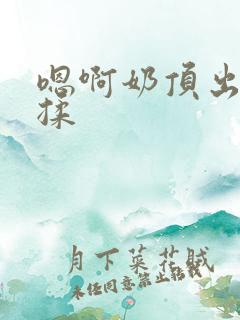 嗯啊奶頂出
揉
月下菜花賊
未经同意禁止转载